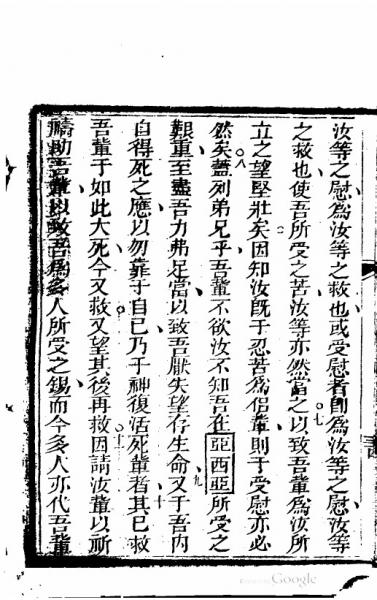 汝等之慰爲汝等之救也或受慰者卽爲汝等之慰汝等
之救也使吾所受之苦汝等亦然當之以致吾輩爲汝所
七
立之望堅壯矣因知汝旣于忍苦爲侶輩則于受慰亦必
八
然矣蓋列弟兄乎吾輩不欲汝不知吾在亞西亞所受之
艱重至盡吾力弗足當以致吾厭失望存生命又于吾内
九
自得死之應以勿靠于自己乃于神復活死輩者其已救
十
吾輩于如此大死今又救又望其後再救因請汝輩以祈
十一
禱助吾輩以致吾爲多人所受之錫而今多人亦代吾輩
Google